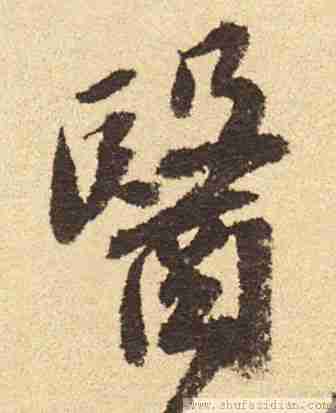 醫
www.shufazidian.com